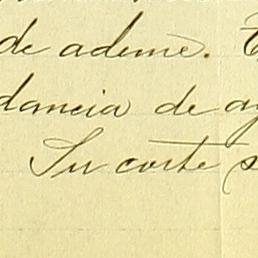 de ademe.
dancia de
Su corte